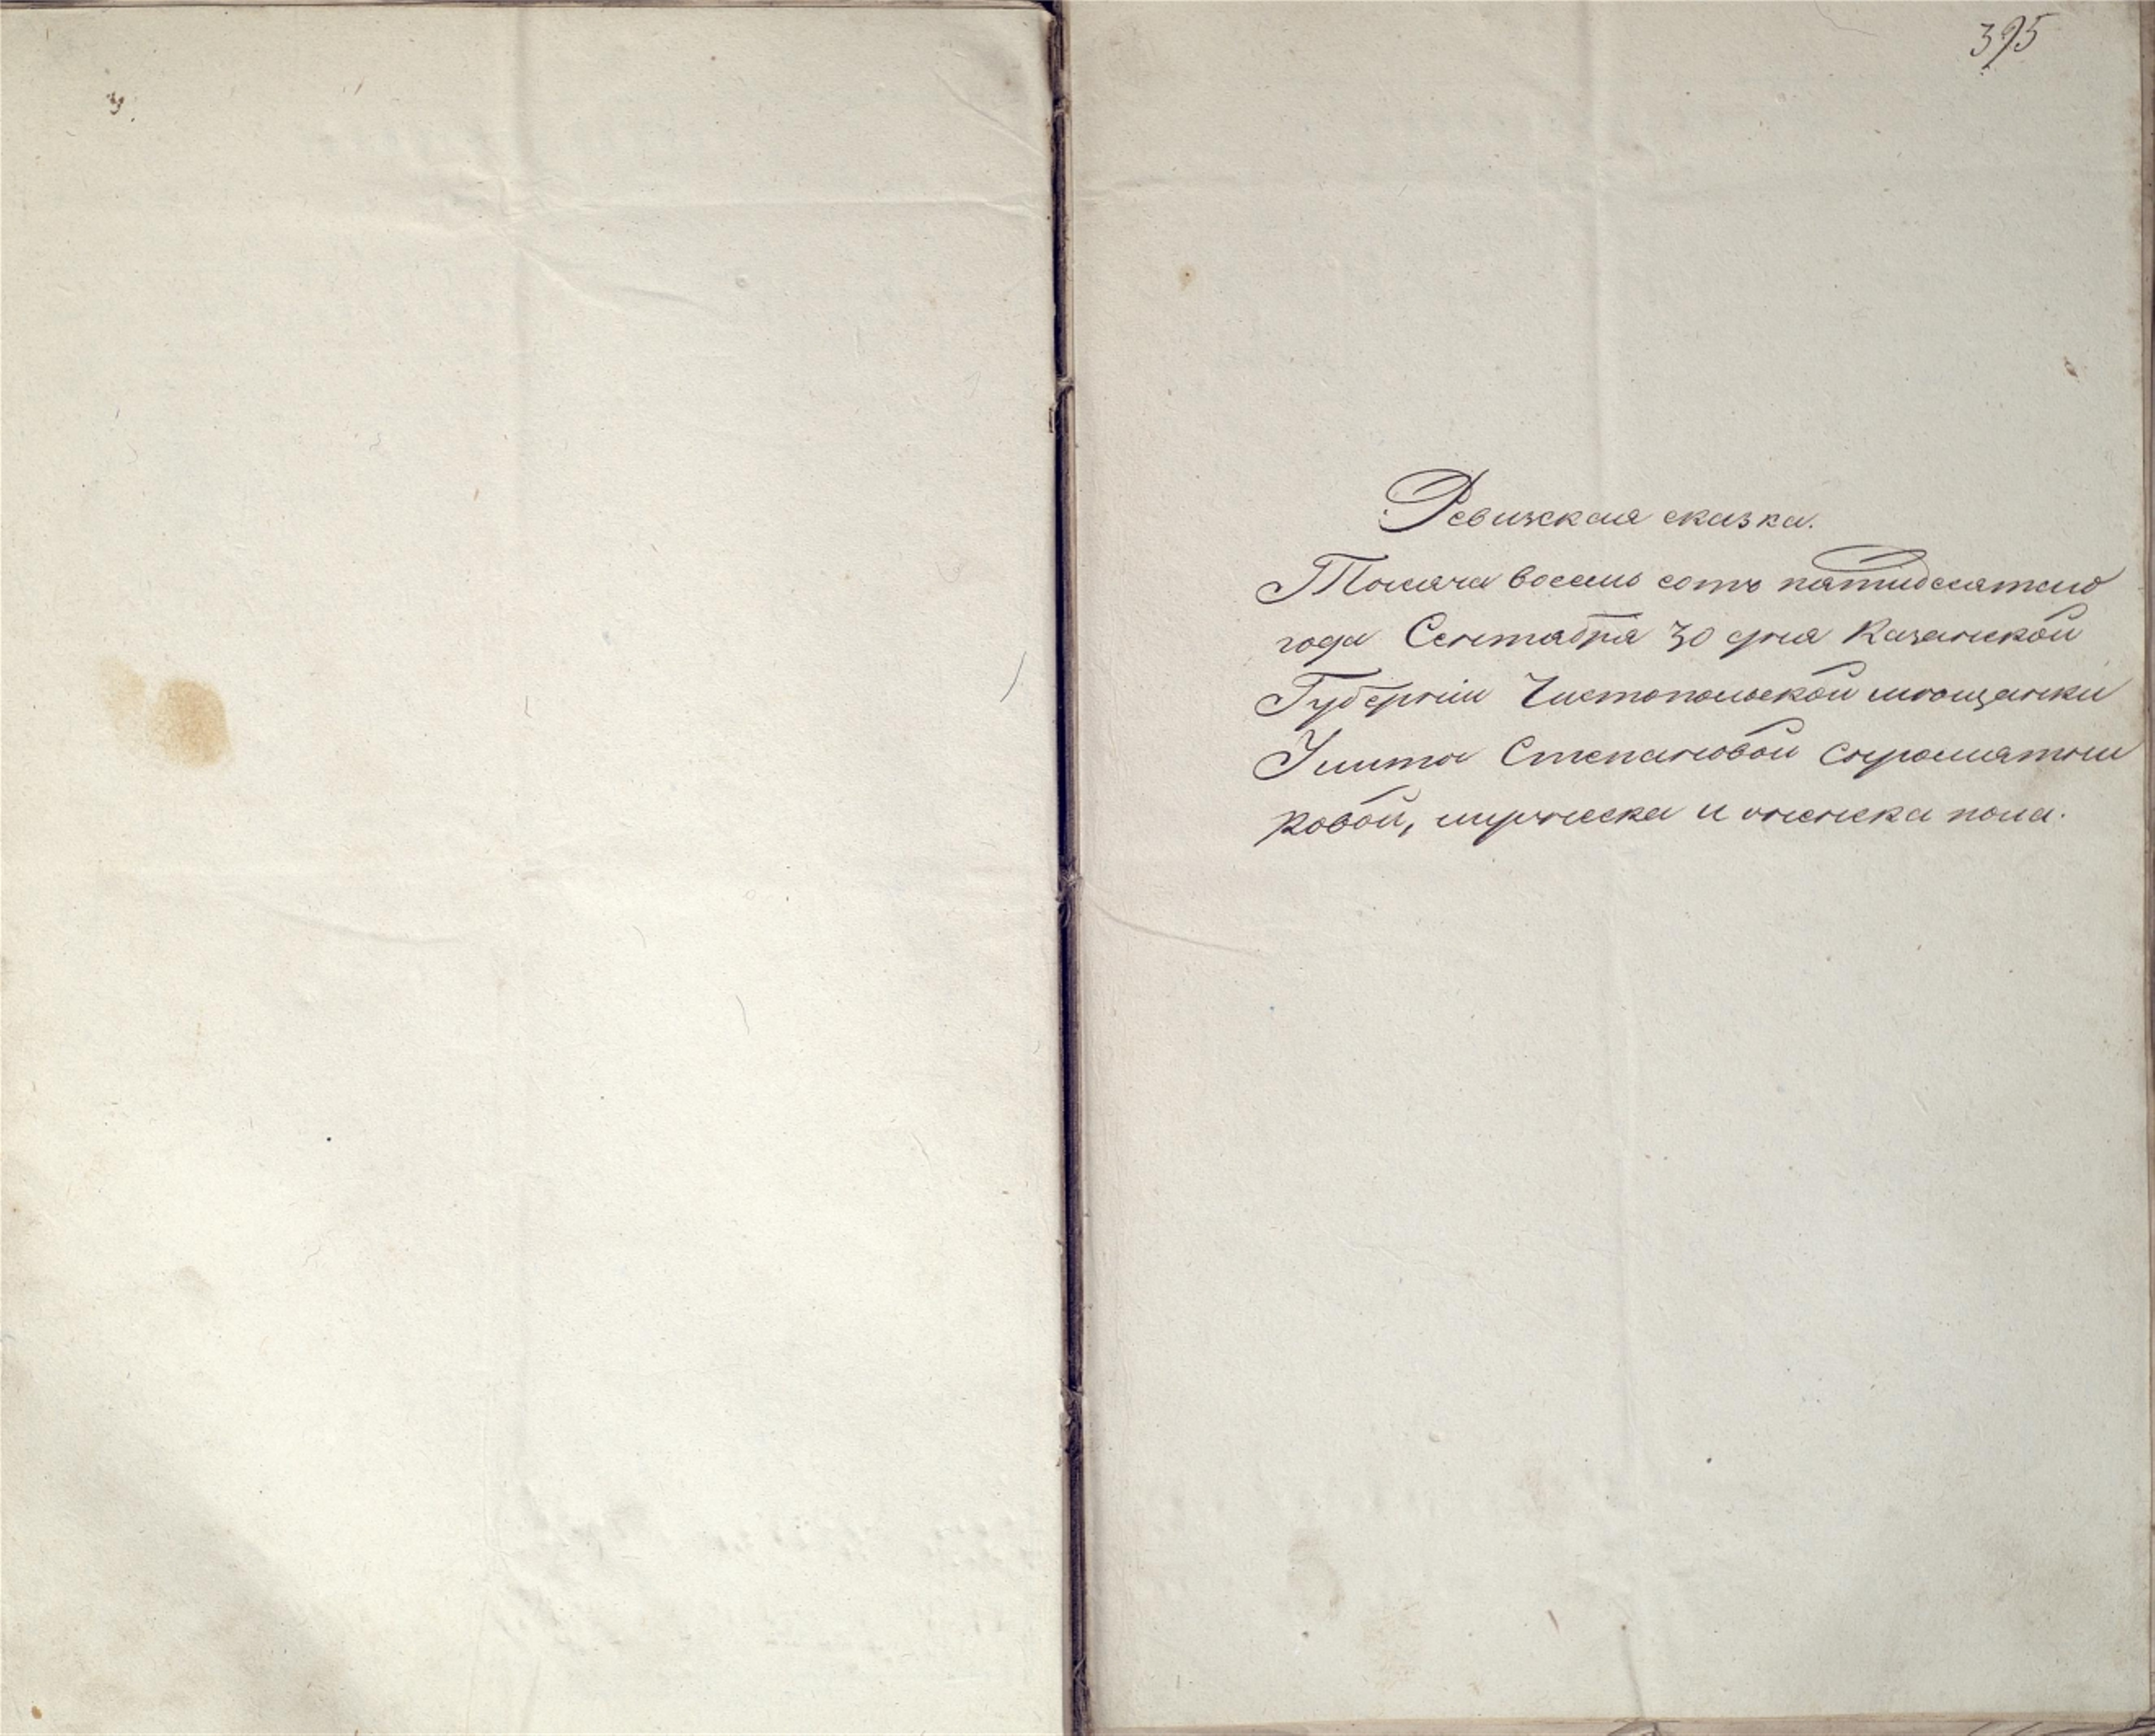 395
Ревижская сказка.
Тысяча восемь сотъ пятидесятаго
года Сентября 30 дня Казанской
Губерніи Чистопольской мѣщанки
Степановой Сыромятни
ковой, мужеска и женска пола.